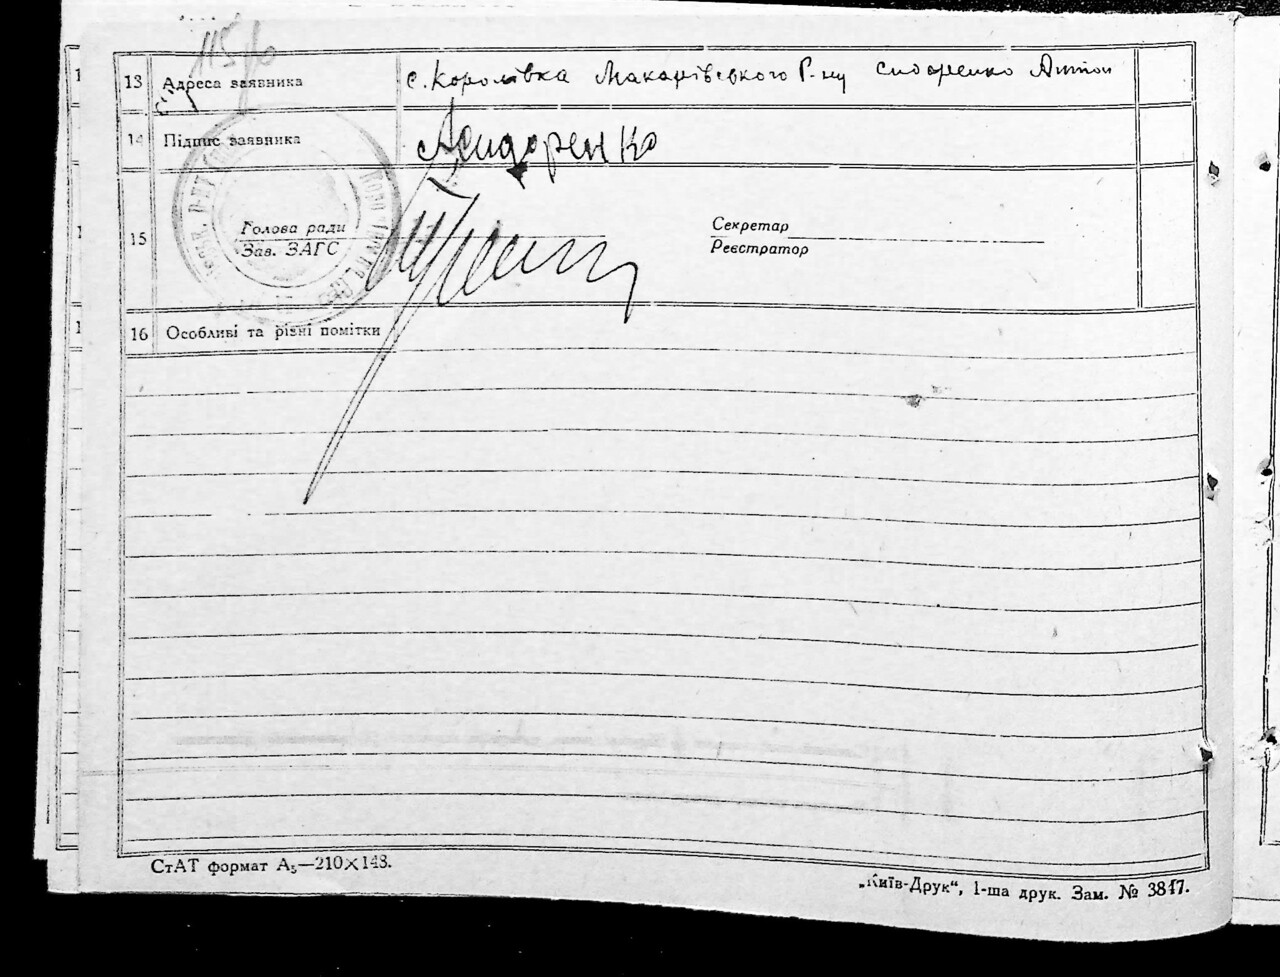 13 Адреса заявника с. Королівка Макарівського Р-ну Сидоренко Антон
14 Підпис заявника А Сидоренко
15 Голова ради
Зав. ЗАГС
Секретар
Реєстратор
16 Особливі та різні помітки
СтАТ формат А₅—210×148.
„Київ-Друк“, 1-ша друк. Зам. № 3847.